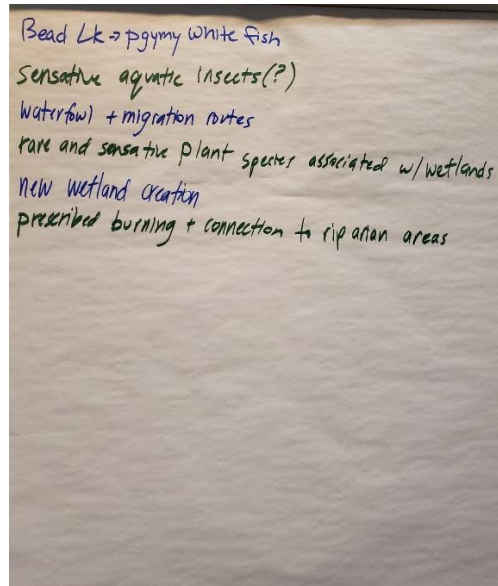 Bead Lk → pgymy white fish
Sensative aquatic insects(?)
Waterfowl + migration routes
rare and sensative plant species associated w/ wetlands
new wetland creation
prescribed burning + connection to riparian areas